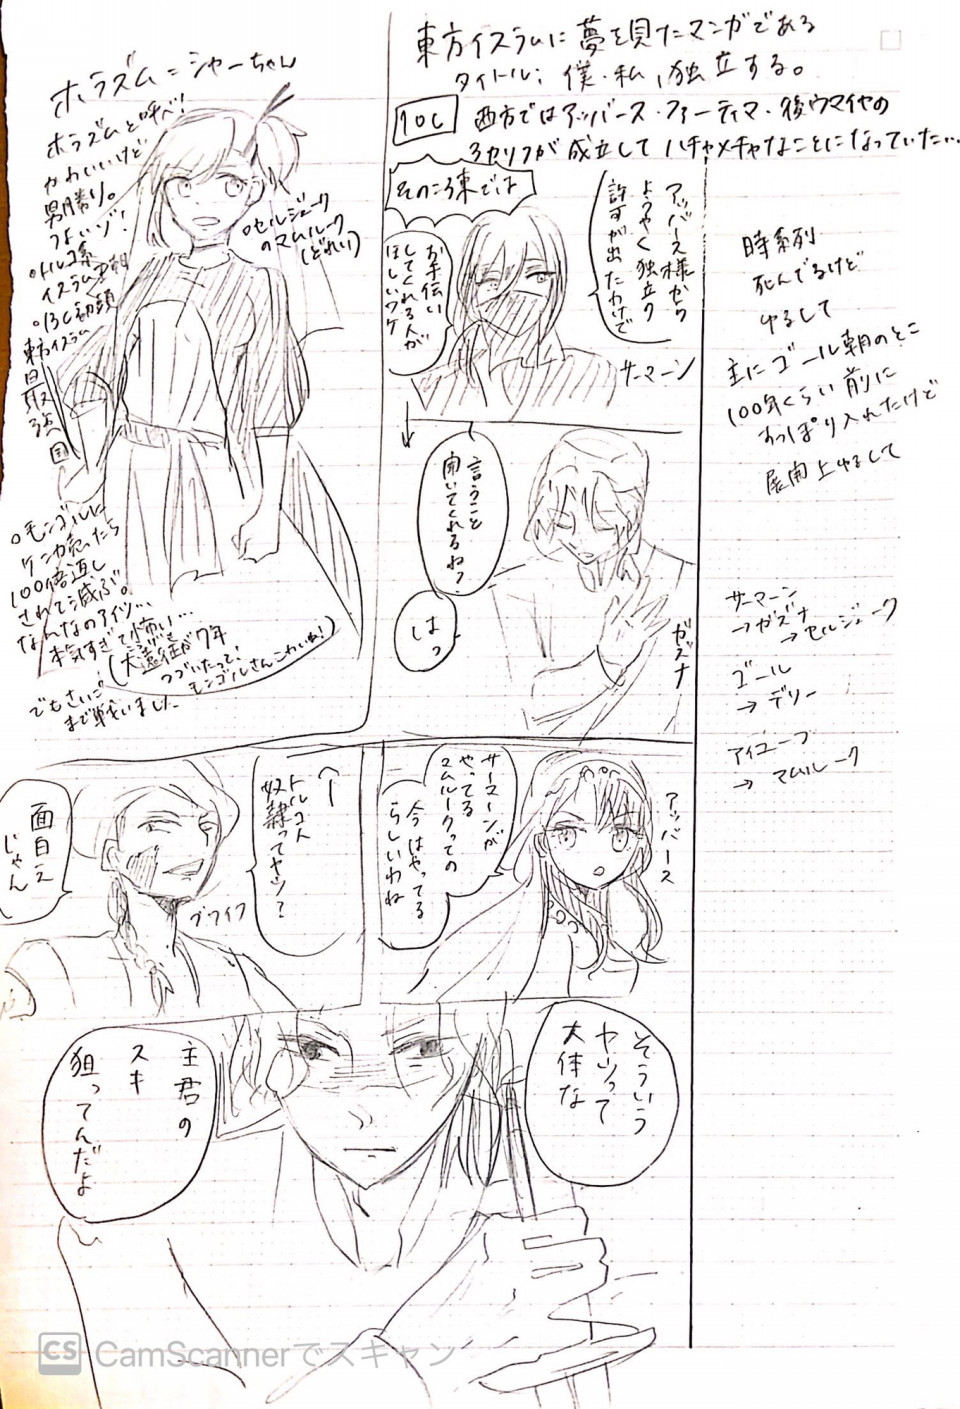 東方イスラムに夢を見たマンガである
タイトル:僕・私、独立する。
10C
西方ではアッバース・ファーティマ・後ウマイヤの
3カリフが成立してハチャメチャなことになっていた…
そのころ東では
アッバース様から
ようやく独立の
許すが出たわけで
お手伝い
してくれる人が
ほしいワケ
サーマーン
時系列
死んでるけど
ゆるして
主にゴール朝のとこ
100年くらい前に
すっぽり入れたけど
展開上ゆるして
言うこと
聞いてくれるね?
はっ
ガズナ
サーマーン
→ガズナ
→セルジューク
ゴール
→デリー
アイユーブ
→マムルーク
ホラズム=シャーちゃん
ホラズムと呼べ!
かわいいけど
男勝り。
つよいゾ!
○トルコ系
イスラム王朝
○13C初頭
東方イスラム
最強国
○セルジューク
のマムルーク
(どれい)
○モンゴルに
ケンカ売ったら
100倍返し
されて滅ぶ。
なんなのアイツ…
本気すぎて怖い…
(大遠征が7年
つづいたって、
モンゴルさんこわいね!)
でもさいご
まで戦いました
アッバース
サーマーンが
やってる
マムルークっての
今はやってる
らしいわね
↑
トルコ人
奴隷ってヤツ?
ブワイフ
面白え
じゃん
そういう
ヤツって
大体な
主君の
スキ
狙ってんだよ
CS CamScannerでスキャン